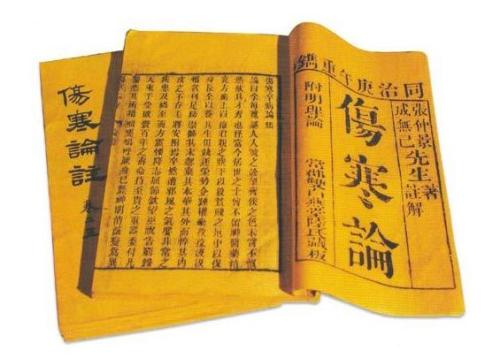 同治庚午重鐫
張仲景先生著
成無己註解
傷寒論
附明理論
常郡雙白燕堂陸氏藏板
傷寒卒病論集
論曰余每覽越人入虢之診望齊侯之色未嘗不慨
然歎其才秀也怪當今居世之士曾不留神醫藥精
究方術上以療君親之疾下以救貧賤之厄中以保
身長全以養其生但競逐榮勢企踵權豪孜孜汲汲
惟名利是務崇飾其末忽棄其本華其外而悴其內
皮之不存毛將安附焉卒然遭邪風之氣嬰非常之
疾患及禍至而方震慄降志屈節欽望巫祝告窮歸
天束手受敗賫百年之壽命持至貴之重器委付凡
醫恣其所措咄嗟嗚呼厥身已斃神明消滅變為異
傷寒論註